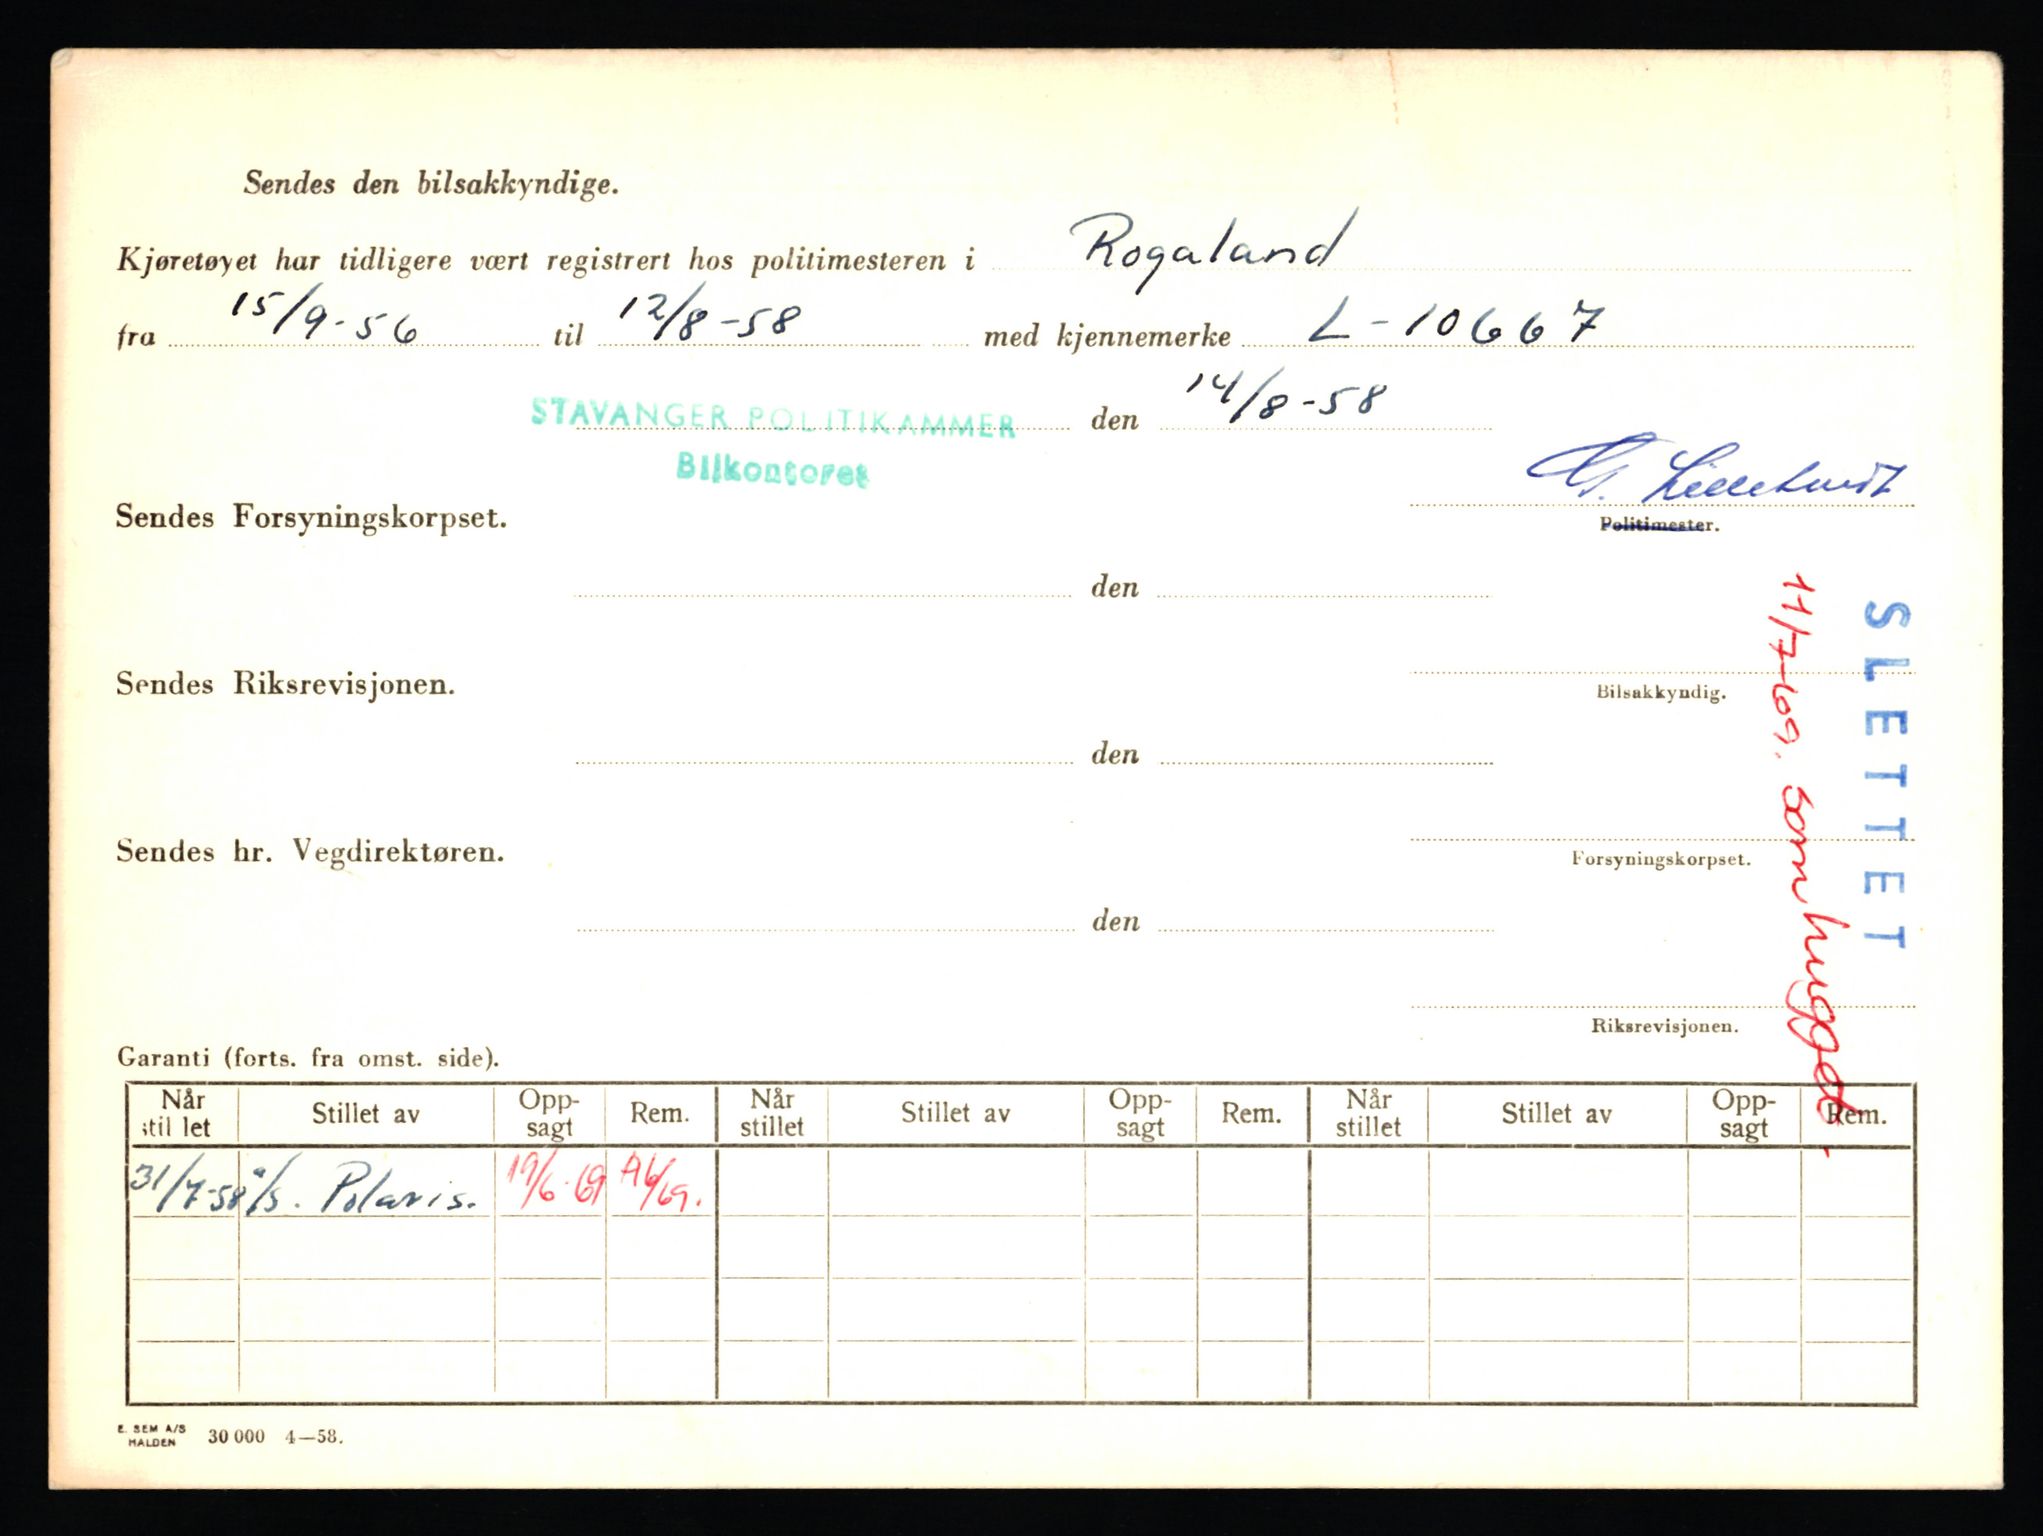 Sendes den bilsakkyndige.
Kjøretøyet har tidligere vært registrert hos politimesteren i Rogaland
fra 15/9-56 til 12/8-58 med kjennemerke L-10667
STAVANGER POLITIKAMMER den 14/8-58
Bilkontoret
Sendes Forsyningskorpset.
Politimester.
den
Sendes Riksrevisjonen.
Bilsakkyndig.
den
Sendes hr. Vegdirektøren.
Forsyningskorpset.
den
Riksrevisjonen.
SLETTET
11/7-69. som hugget.
Garanti (forts. fra omst. side).
Når stillet Stillet av Opp-sagt Rem. Når stillet Stillet av Opp-sagt Rem. Når stillet Stillet av Opp-sagt Rem.
31/7-58 a/s. Polaris. 19/6-69
E. SEM A/S
HALDEN 30 000 4—58.